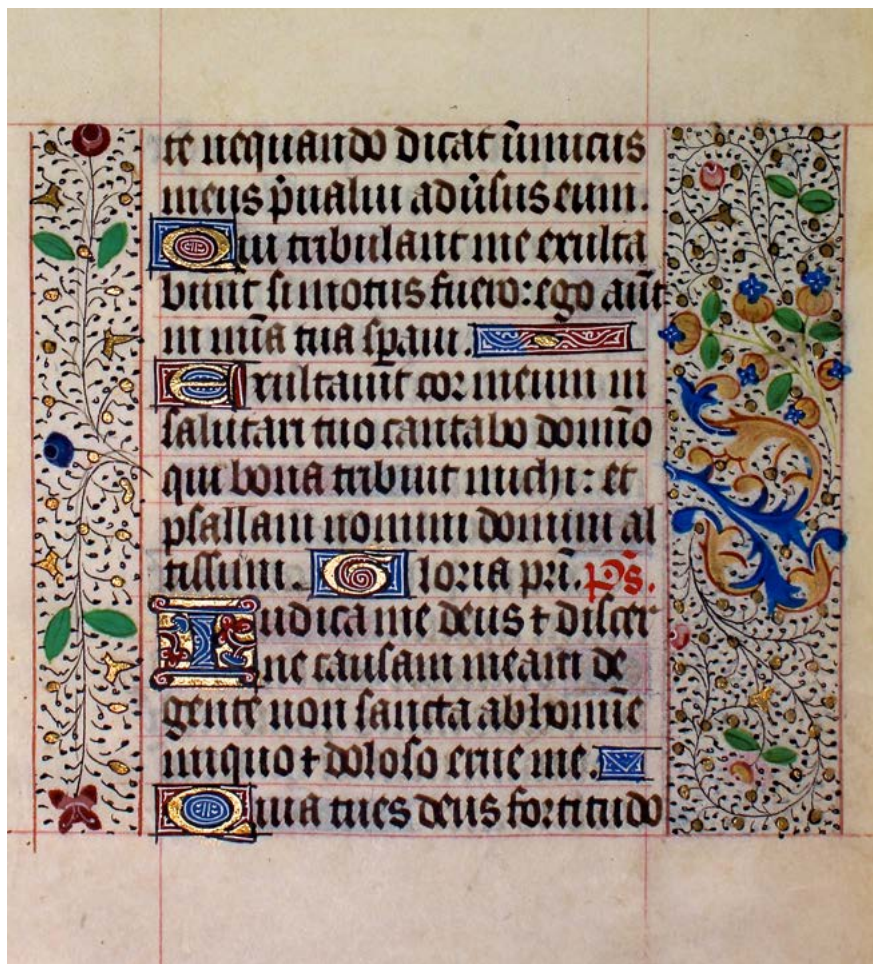 te nequando dicat inimicus
meus p̄ualui adūsus eum.
Qui tribulant me exulta
bunt si motus fuero: ego aūt
in mīa tua sp̄aui.
Exultauit cor meum in
salutari tuo cantabo domīo
qui bona tribuit michi: et
psallam nomini domini al
tissimi. Gloria pr̄i. Ps̄.
Iudica me deus ⁊ discer
ne causam meam de
gente non sancta ab homīe
iniquo ⁊ doloso erue me.
Quia tu es deus fortitudo